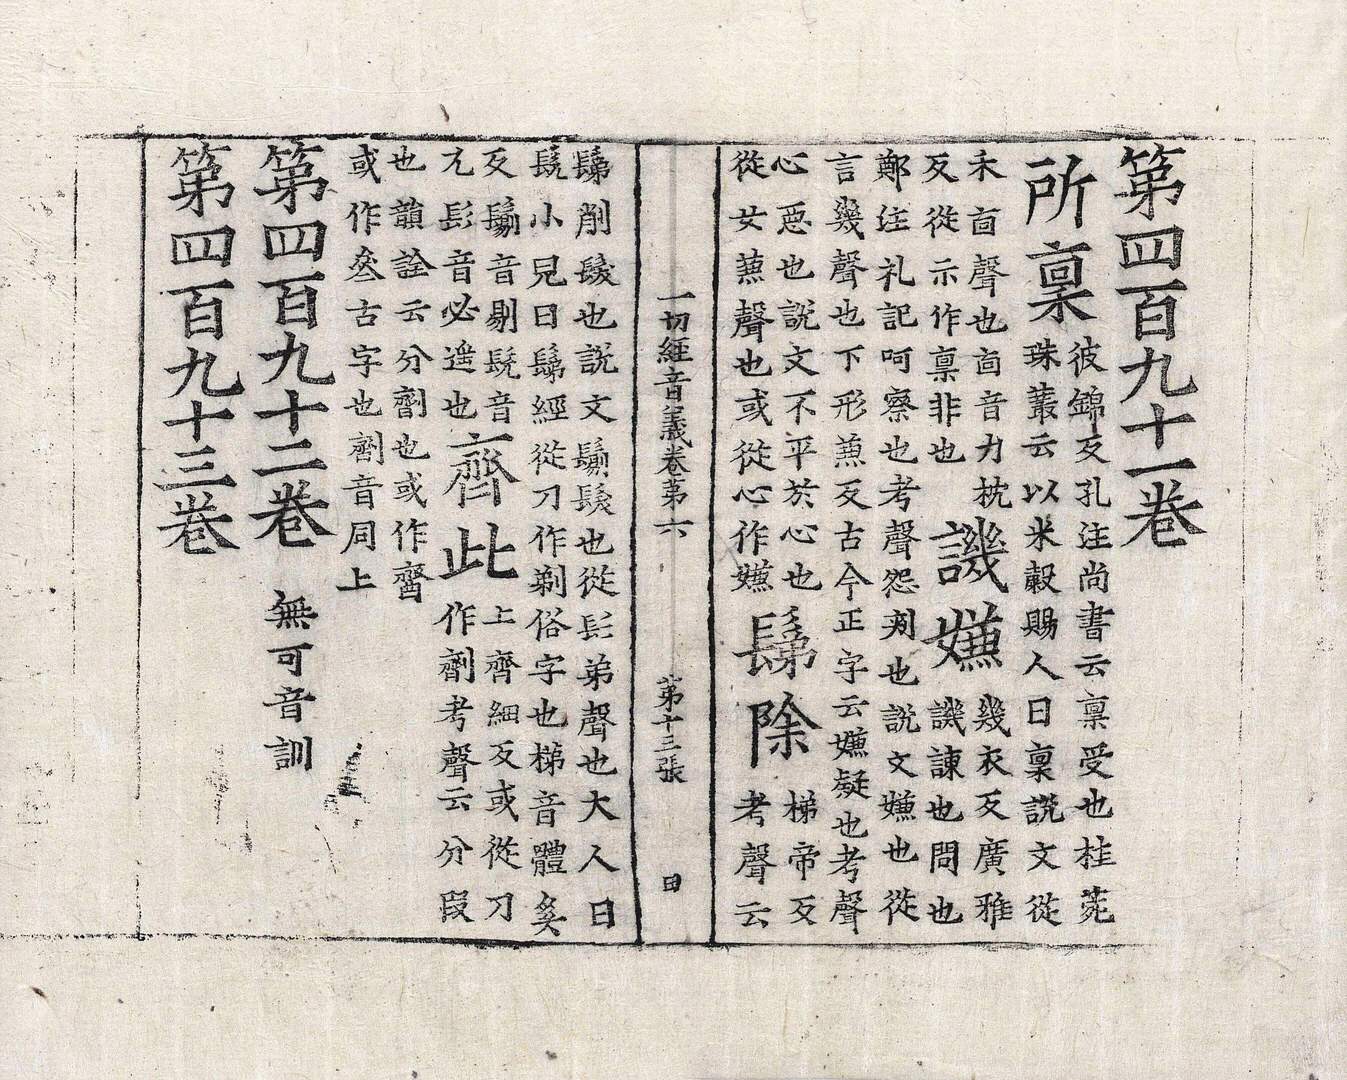 第四百九十一卷
所稟 彼錦反孔注尚書云稟受也桂菀
珠叢云以米穀賜人曰稟說文從
禾㐭聲也㐭音力枕
反從示作禀非也
譏嫌 幾衣反廣雅
譏諫也問也
鄭注礼記呵察也考聲怨刺也說文嫌也從
言幾聲也下形蒹反古今正字云嫌疑也考聲
心惡也說文不平於心也
從女蒹聲也或從心作嫌
鬀除 梯帝反
考聲云
一切經音義卷第六 第十三張 田
鬀削髮也說文鬄髮也從髟弟聲也大人曰
髡小兒曰鬀經從刀作剃俗字也梯音體奚
反鬄音剔髡音
兀髟音必遥也
齊此 上齊細反或從刀
作劑考聲云分段
也韻詮云分劑也或作
或作亝古字也劑音同上
第四百九十二卷 無可音訓
第四百九十三卷